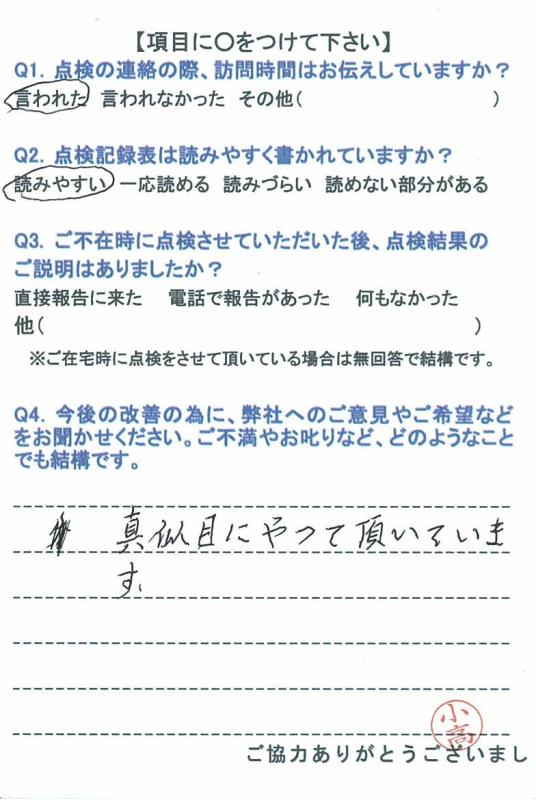 【項目に〇をつけて下さい】
Q1．点検の連絡の際、訪問時間はお伝えしていますか？
言われた 言われなかった その他( )
Q2．点検記録表は読みやすく書かれていますか？
読みやすい 一応読める 読みづらい 読めない部分がある
Q3．ご不在時に点検させていただいた後、点検結果の
ご説明はありましたか？
直接報告に来た 電話で報告があった 何もなかった
他( )
※ご在宅時に点検をさせて頂いている場合は無回答で結構です。
Q4．今後の改善の為に、弊社へのご意見やご希望など
をお聞かせください。ご不満やお叱りなど、どのようなこと
でも結構です。
真似目にやって頂いていま
す.
小高
ご協力ありがとうございまし